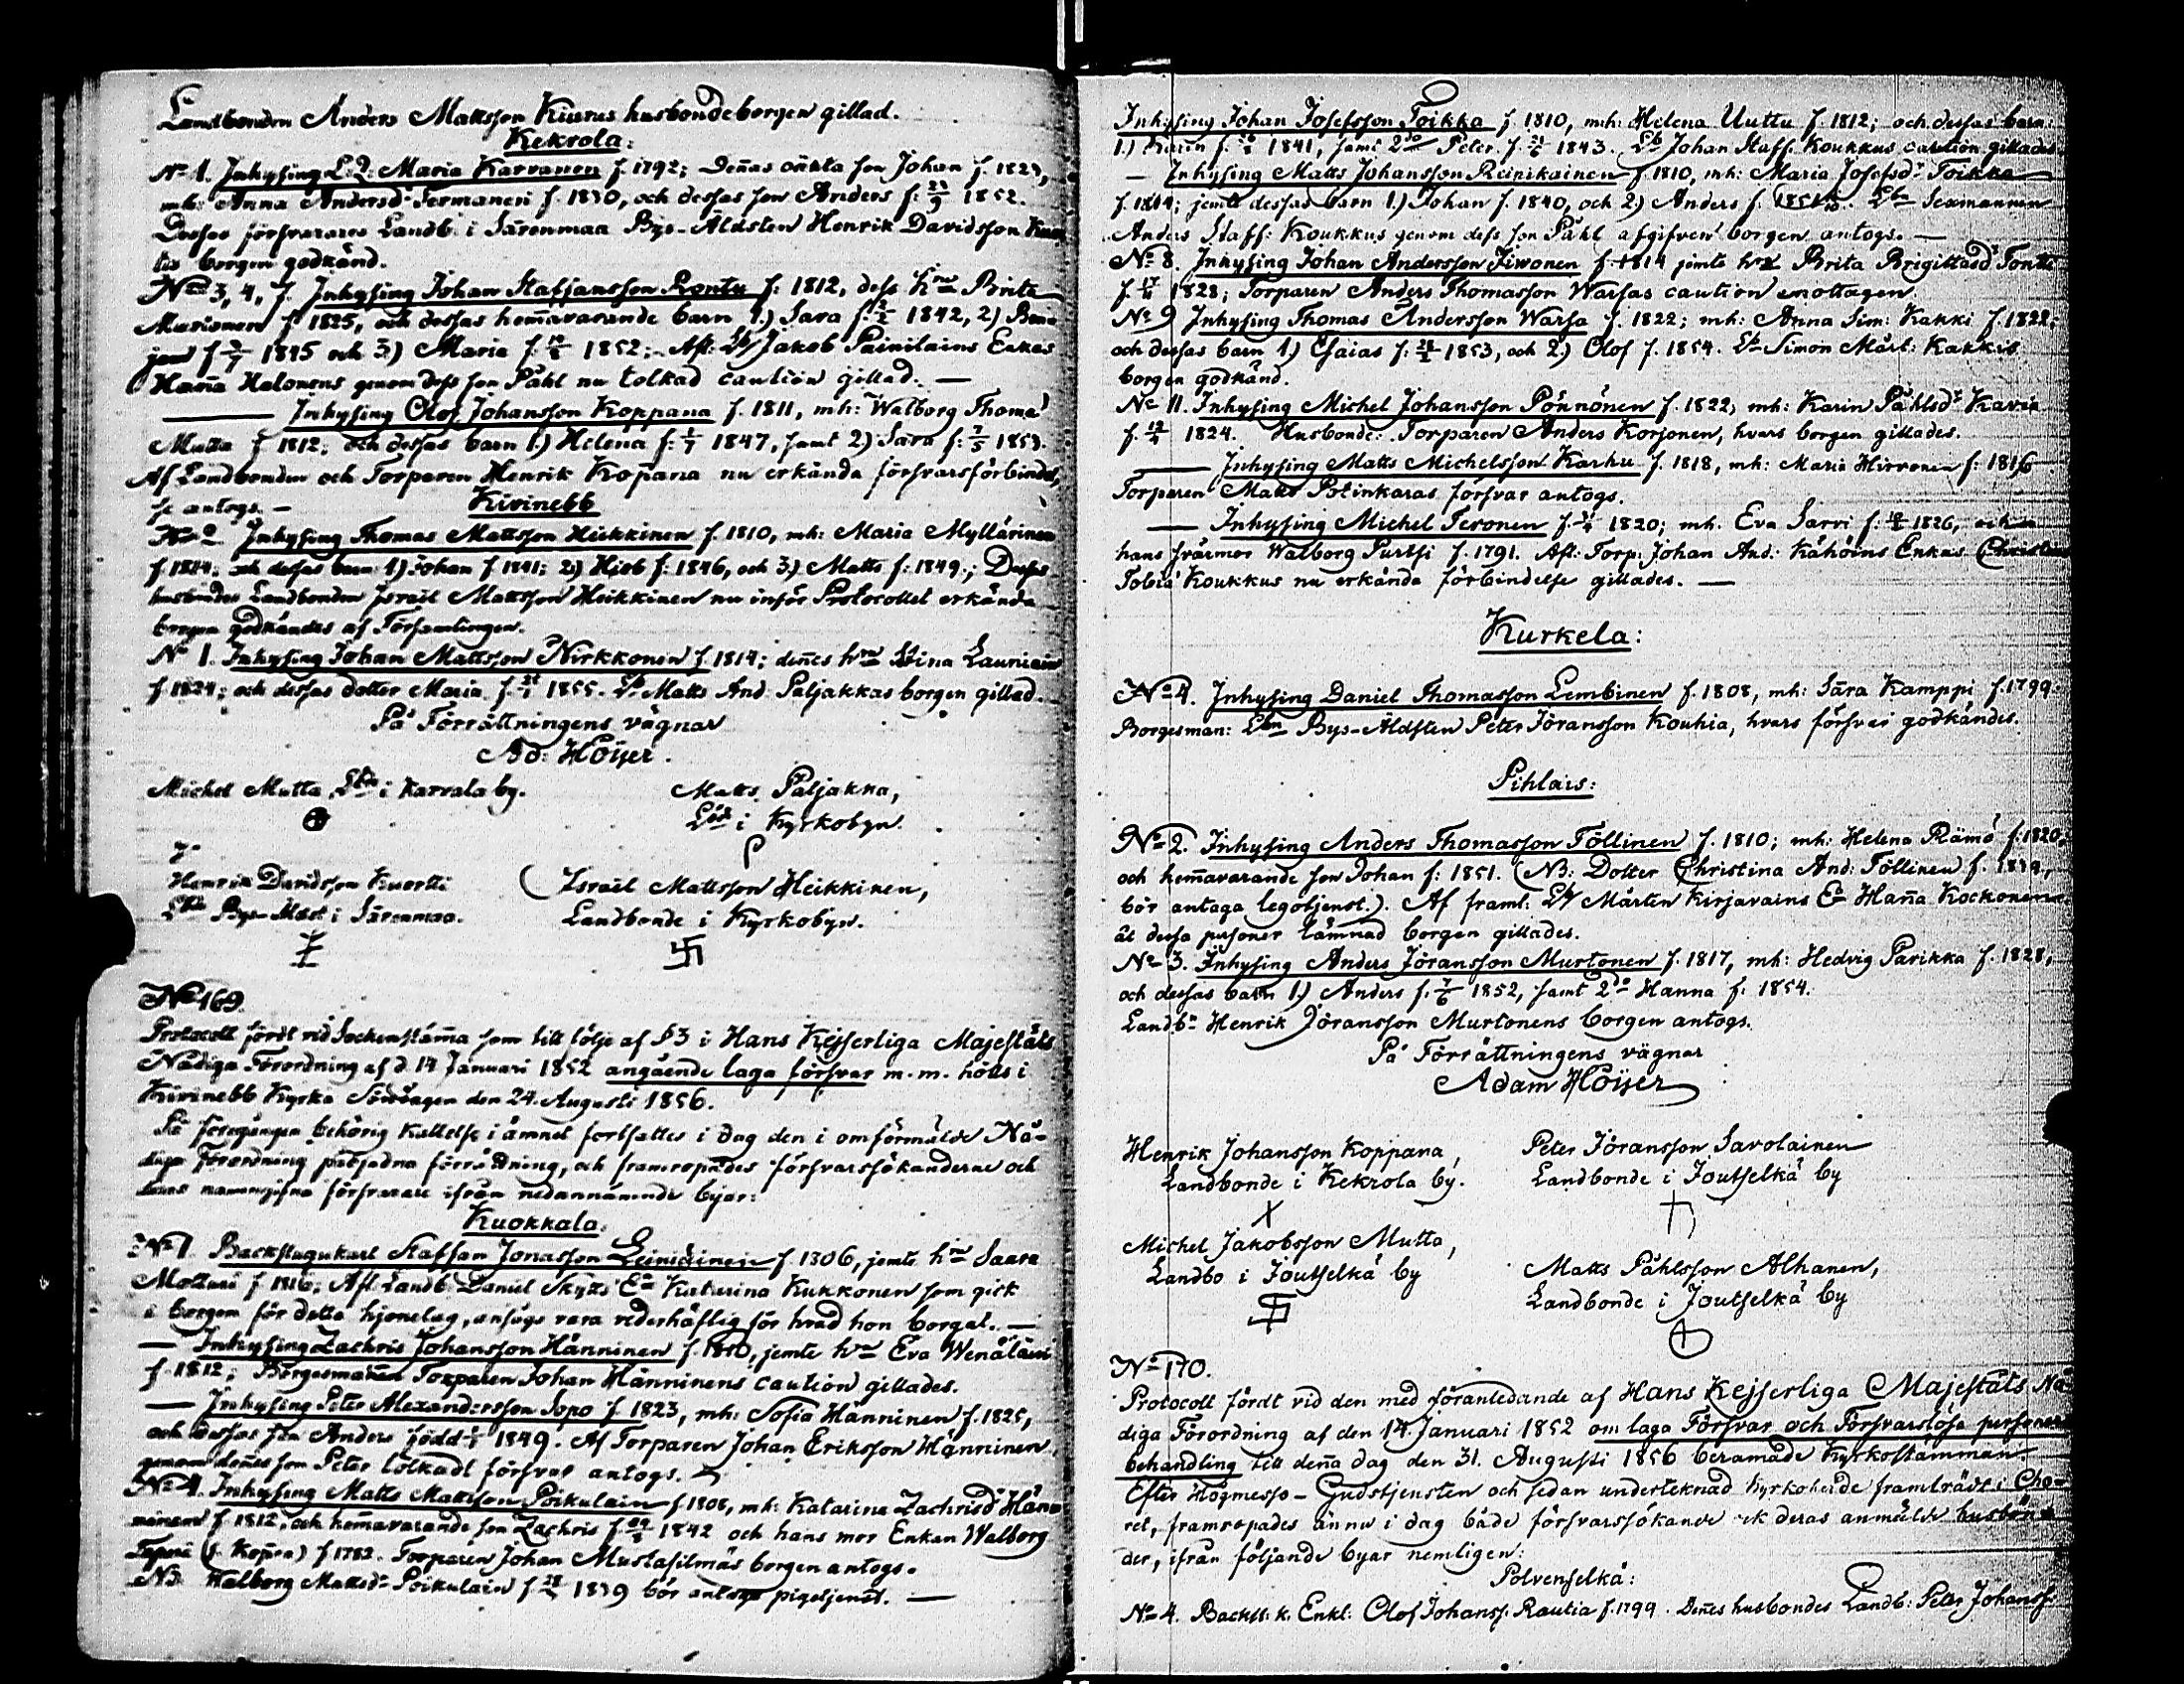 Landbonden Anders Mattsson Kiurus husbondeborgen gillad.
Kekrola:
No 1. Inhysing E.Q. Maria Karvanen f. 1792; Deñas oäkta son Johan f. 1829,
mh: Anna Andersdr Termanen f. 1830, och dessas son Anders f: 1852.
Dessas försvarares Landb. i Särenmaa Bys-Äldsten Henrik Davidsson
borgen godkänd.
No 3, 4, 7. Inhysing Johan Staffansson Rontu f. 1812, dess hru Brita
Musionen f. 1825, och dessas hem̄avarande barn 1.) Sara f. 1842, 2) Ben-
jam f. 1845 och 3.) Maria f. 1852; Afl: Lb Jakob Painilains Enkas
Hañna Halonens genom dess son Påhl nu tolkad caution gillad. —
Inhysing Olof Johansson Koppana f. 1811, mh: Walborg Thomad
Mutta f. 1812; och dessas barn 1.) Helena f: 1847, samt 2.) Sara f: 7/5 1853.
Af Landbonden och Torparen Henrik Kopana nu erkända försvarsförbindel,
se antogs. —
Kivinebb
Inhysing Thomas Mattsson Hiekkinen f. 1810, mh: Maria Myllärinen
f. 1814. och dessas barn 1) Johan f. 1841; 2) Hiob f: 1846, och 3.) Matts f: 1849.; Dessas
husbondes Landbonden Israel Mattsson Heikkinen nu inför Protocollet erkända
borgen godkändes af Församlingen.
No 1. Inhysing Johan Mattsson Nirkkonen f. 1814; deñes hru Stina Launiain
f. 1824; och dessas dotter Maria f. 1855. Lb Matts And. Paljakkas borgen gillad.
På Förrättningens vägnar
Ad: Höijer.
Michel Mutta Lbde i Karvala by.
Matts Paljakka,
Lbde i Kyrkobyn.
Henrik Davidsson Kuortti
Lbde Bys-Äldst i Särenmaa.
Israel Mattsson Heikkinen,
Landbonde i Kyrkobyn.
No 169.
Protocoll fördt vid Sockenstäm̄a som till följe af §3 i Hans Kejserliga Majestäts
Nådiga Förordning af d. 14 Januari 1852 angående laga försvar m.m. hölls i
Kivinebb Kyrka Söndagen den 24. Augusti 1856.
På föregången behörig kallelse i ämnet fortsattes i dag den i omförmälde Nå-
diga förordning förrättning, och framropades försvarssökanderne och
deras namngifna försvarare ifrån nedannämnde byar:
Kuokkala:
No 1. Backstugukarl Staffan Jonasson Leinikäinen f. 1806, jemte hru Saara
Mottari f. 1816; Afl. Landb. Daniel Skyttä Ea Katarina Kukkonen som gick
i borgen för detta hjonelag, ansågs vara vederhäftig för hvad hon borgat. —
— Inhysing Zachris Johansson Hänninen f. 1810, jemte hru Eva Wenäläin
f. 1812; Borgesmañen Torparen Johan Hänninens caution gillades.
— Inhysing Peter Alexandersson Sopo f. 1823, mh: Sofia Hänninen f. 1825,
och dessas son Anders född 1849. Af Torparen Johan Eriksson Hänninen
genom deñes son Peter tolkadt försvar antogs.
No 4. Inhysing Matts Mattsson Poikulain f. 1808, mh: Katarina Zachrisdr Hän-
ninen f. 1812, och hem̄avarande son Zachris f. 1842 och hans mor Enkan Walborg
f. 1782. Torparen Johan Mustasilmäs borgen antogs.
NB Walborg Mattsdr Poikulain f. 1839 bör antaga pigetjenst. —
Inhysing Johan Josefsson Toikka f. 1810, mh: Helena Uuttu f. 1812; och dessas barn:
1.) Karin f. 1841, samt 2do Peter f. 1843. Lb Johan Staff. Koukkus caution gillades.
— Inhysing Matts Johansson Reinikainen f. 1810, mh: Maria Josefsdr Toikka
f. 1814; jemte dessas barn 1.) Johan f. 1840, och 2.) Anders f. 1851. Lbn Sexmannen
Anders Staff: Koukkus genom dess son Påhl afgifven borgen antogs. —
No 8. Inhysing Johan Andersson Jiwonen f. 1814 jemte hru Brita Brigittasdr Tontt
f. 1828; Torparen Anders Thomasson Warsas caution emottagen.
No 9 Inhysing Thomas Andersson Warsa f. 1822; mh: Anna Sim: Kakki f. 1822;
och dessas barn 1.) Esaias f: 1853, och 2.) Olof f. 1854. Lb Simon Mårt: Kakkis
borgen godkänd.
No 11. Inhysing Michel Johansson Pönnönen f. 1822, mh: Karin Påhlsdr Karia
f. 1824. Husbonde: Torparen Anders Korjonen, hvars borgen gillades.
— Inhysing Matts Michelsson Karhu f. 1818, mh: Maria Hirvonen f: 1816
Torparen Matts Potinkaras försvar antogs.
— Inhysing Michel Teronen f. 1820; mh. Eva Sarvi f. 1826, och
hans svärmor Walborg Purtsi f. 1791. Afl: Torp: Johan And: Kähöins Enkas Christin
Tobiæ Koukkus nu erkända förbindelse gillades. —
Kurkela:
No 4. Inhysing Daniel Thomasson Lembinen f. 1808, mh: Sara Kamppi f. 1799.
Borgesman: Lbn Bys-Äldsten Peter Jöransson Kouhia, hvars försvar godkändes.
Pihlais:
No 2. Inhysing Anders Thomasson Töllinen f. 1810; mh: Helena Rämö f. 1820,
och hem̄avarande son Johan f: 1851. (NB: Dotter Christina And: Töllinen f. 1839,
bör antaga legotjenst.). Af framl: Lb Mårten Kirjavains Ea Hañna Kockonen
åt dessa personer lämnad borgen gillades.
No 3. Inhysing Anders Jöransson Murtonen f. 1817, mh: Hedvig Parikka f. 1828,
och dessas barn 1.) Anders f. 7/6 1852, samt 2do Hanna f: 1854.
Landbn Henrik Jöransson Murtonens borgen antogs.
På Förrättningens vägnar
Adam Höijer
Henrik Johansson Koppana,
Landbonde i Kekrola by.
Peter Jöransson Savolainen
Landbonde i Joutselkä by
Michel Jakobsson Mutta,
Landbo i Joutselkä by
Matts Påhlsson Alhanen,
Landbonde i Joutselkä by
No 170.
Protocoll fördt vid den med föranledande af Hans Kejserliga Majestäts Nå-
diga Förordning af den 14. Januari 1852 om laga Försvar och Försvarslösa personers
behandling till deña dag den 31. Augusti 1856 beramade Kyrkostämman.
Efter Högmesso-Gudstjensten och sedan undertecknad Kyrkoherde framträdt i Cho-
ret, framropades ännu i dag både försvarssökande och deras anmälde husbön-
der, ifrån följande byar nemligen:
Polvenselkä:
No 4. Backst: k. Enkl: Olof Johanss. Rautia f. 1799. Deñes husbondes Landb: Peter Johanss.